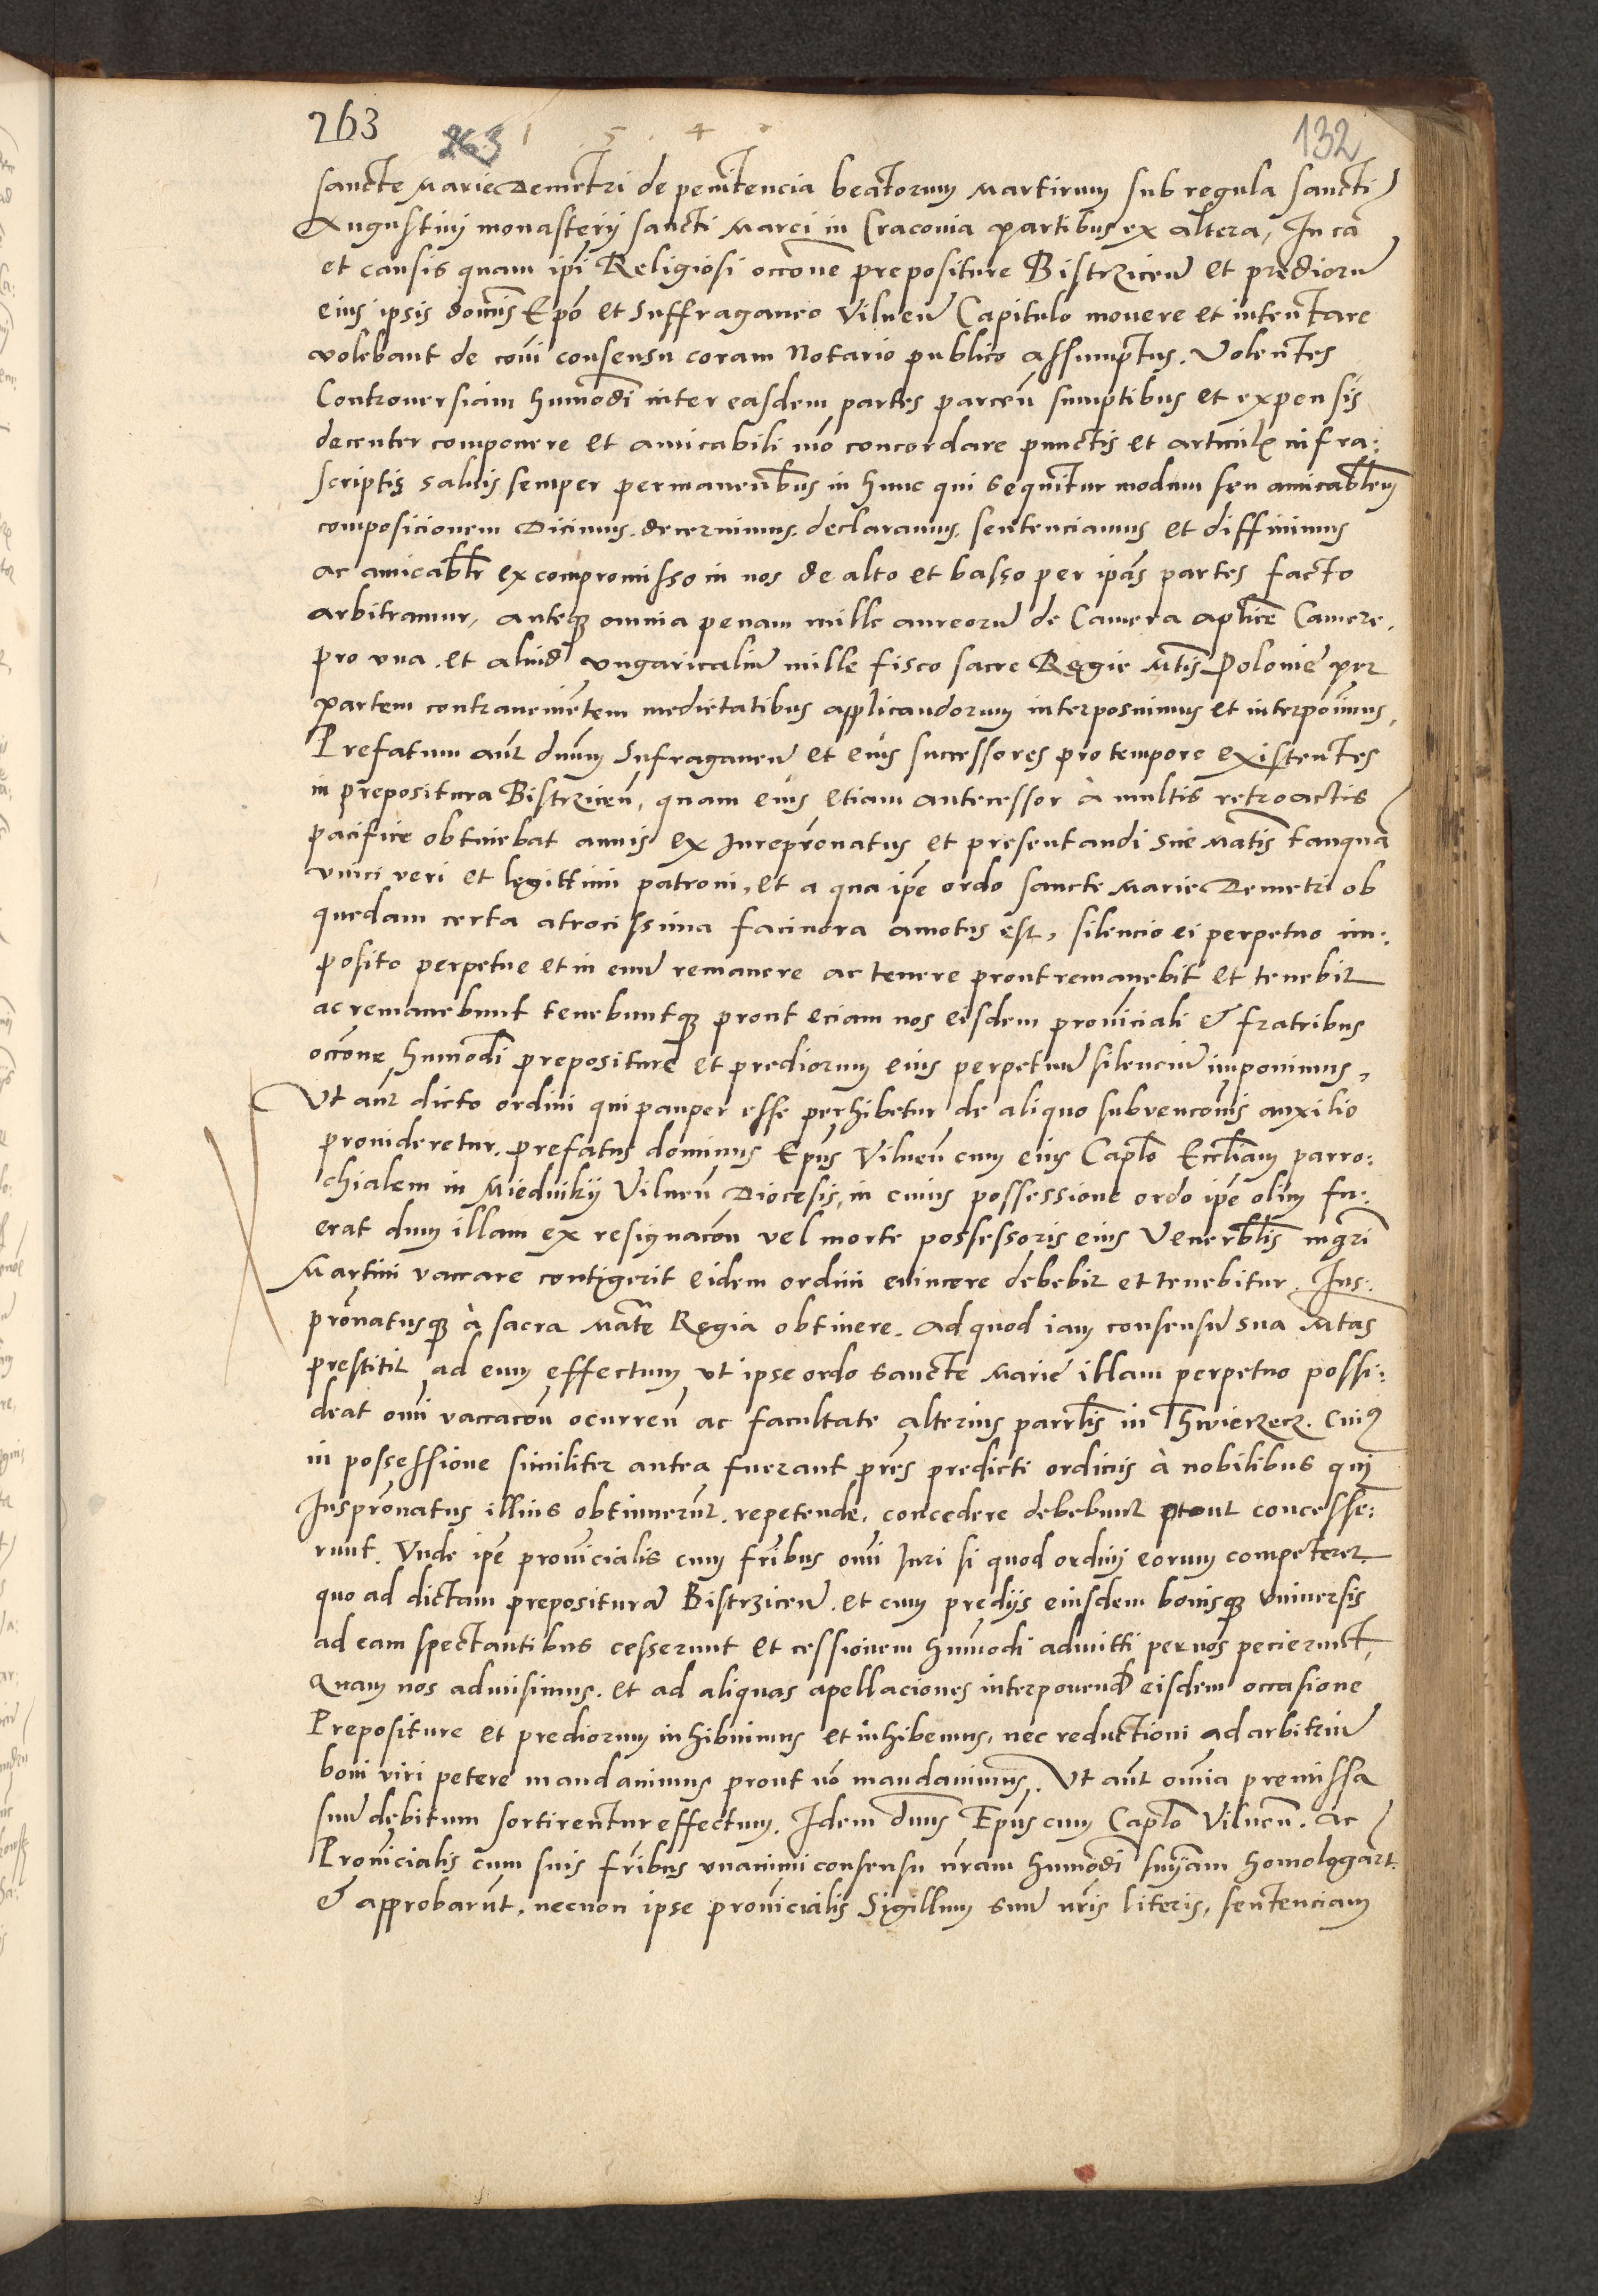 263 263 132
sancte Marie Demetri de penitencia beatorum Martirum sub regula sancti
Augustini monasterij sancti Marci in Cracovia partibus ex altera, In ca
et causis quam ipi Religiosi occone prepositure Bistrzicen et predioru
eius ipsis dominis Epo et Suffraganeo Vilnen Capitulo mouere et intentare
volebant de coui consensu coram Notario publico assumptus. Volentes
Controuersiam humodi inter easdem partes parcen sumptibus et expensis
decenter componere et amicabili mo concordare punctis et articulis infra:
scriptis saluis semper permanentibus in hunc qui sequitur modum seu amicabilem
composicionem Dicimus. decernimus. declaramus. sentenciamus et diffinimus
ac amicablr ex compromisso in nos de alto et basso per ipas partes facto
arbitramur, anteq omnia penam mille aureoru de Camera aplice Camere.
pro vna. et aliud vngaricaliu mille fisco sacre Regie Mtis Polonie per
partem contrauenientem medietatibus applicandorum interposuimus et interponimus,
Prefatum aut dnum Sufraganeu et eius successores pro tempore existentes
in prepositura Bistrzicen, quam eius etiam antecessor à multis retroactis
pacifice obtinebat annis ex Jurepronatus et presentandi sue Matis tanqua
vnici veri et legittimi patroni, et a qua ipe ordo sancte Marie Demetri ob
quedam certa atrocissima facinora amotus est, silencio ei perpetuo im:
posito perpetue et in euu remanere ac tenere prout remanebit et tenebit
ac remanebunt tenebuntq prout eciam nos eisdem prouinciali & fratribus
occone humodi prepositure et prediorum eius perpetuu silenciu imponimus,
Vt aut dicto ordini qui pauper esse perhibetur de aliquo subuenconis auxilio
prouideretur. prefatus dominus Epus Vilnen cum eius Caplo Eccliam parro:
chialem in Miedniky Vilnen Diocesis, in cuius possessione ordo ipe olim fu:
erat dum illam ex resignacon vel morte possessoris eius Venerblis mgri
Martini vaccare contigerit eidem ordini euincere debebit et tenebitur. Ius:
pronatusq à sacra Mate Regia obtinere. ad quod iam consensu sua Mtas
prestitit ad eum effectum vt ipse ordo sancte Marie illam perpetuo possi:
deat omi vaccacon ocurren ac facultate alterius parrlis in Thwierzecz. Cuius
in possessione similiter antea fuerant pres predicti ordinis à nobilibus qui
Juspronatus illius obtinuerut. repetende. concedere debebunt prout concesse:
runt. Vnde ipe prouincialis cum fribus omi Juri si quod ordini eorum competeret
quo ad dictam prepositura Bistrzicen. et cum predijs eiusdem bonisq vniuersis
ad eam spectantibus cesserunt et cessionem humodi admitti per nos pecierunt,
Quam nos admisimus. et ad aliquas apellaciones interponend eisdem occasione
Prepositure et prediorum inhibuimus et inhibemus, nec reductioni ad arbitriu
boni viri petere mandauimus prout vo mandauimus. Vt aut omia premissa
suu debitum sortirentur effectum. Idem dnus Epus cum Caplo Vilnen. ac
Prouincialis cum suis fribus vnanimi consensu nram humodi snyam homologart.
& approbarut. necnon ipse prouincialis Sigillum suu nris literis, sentenciam